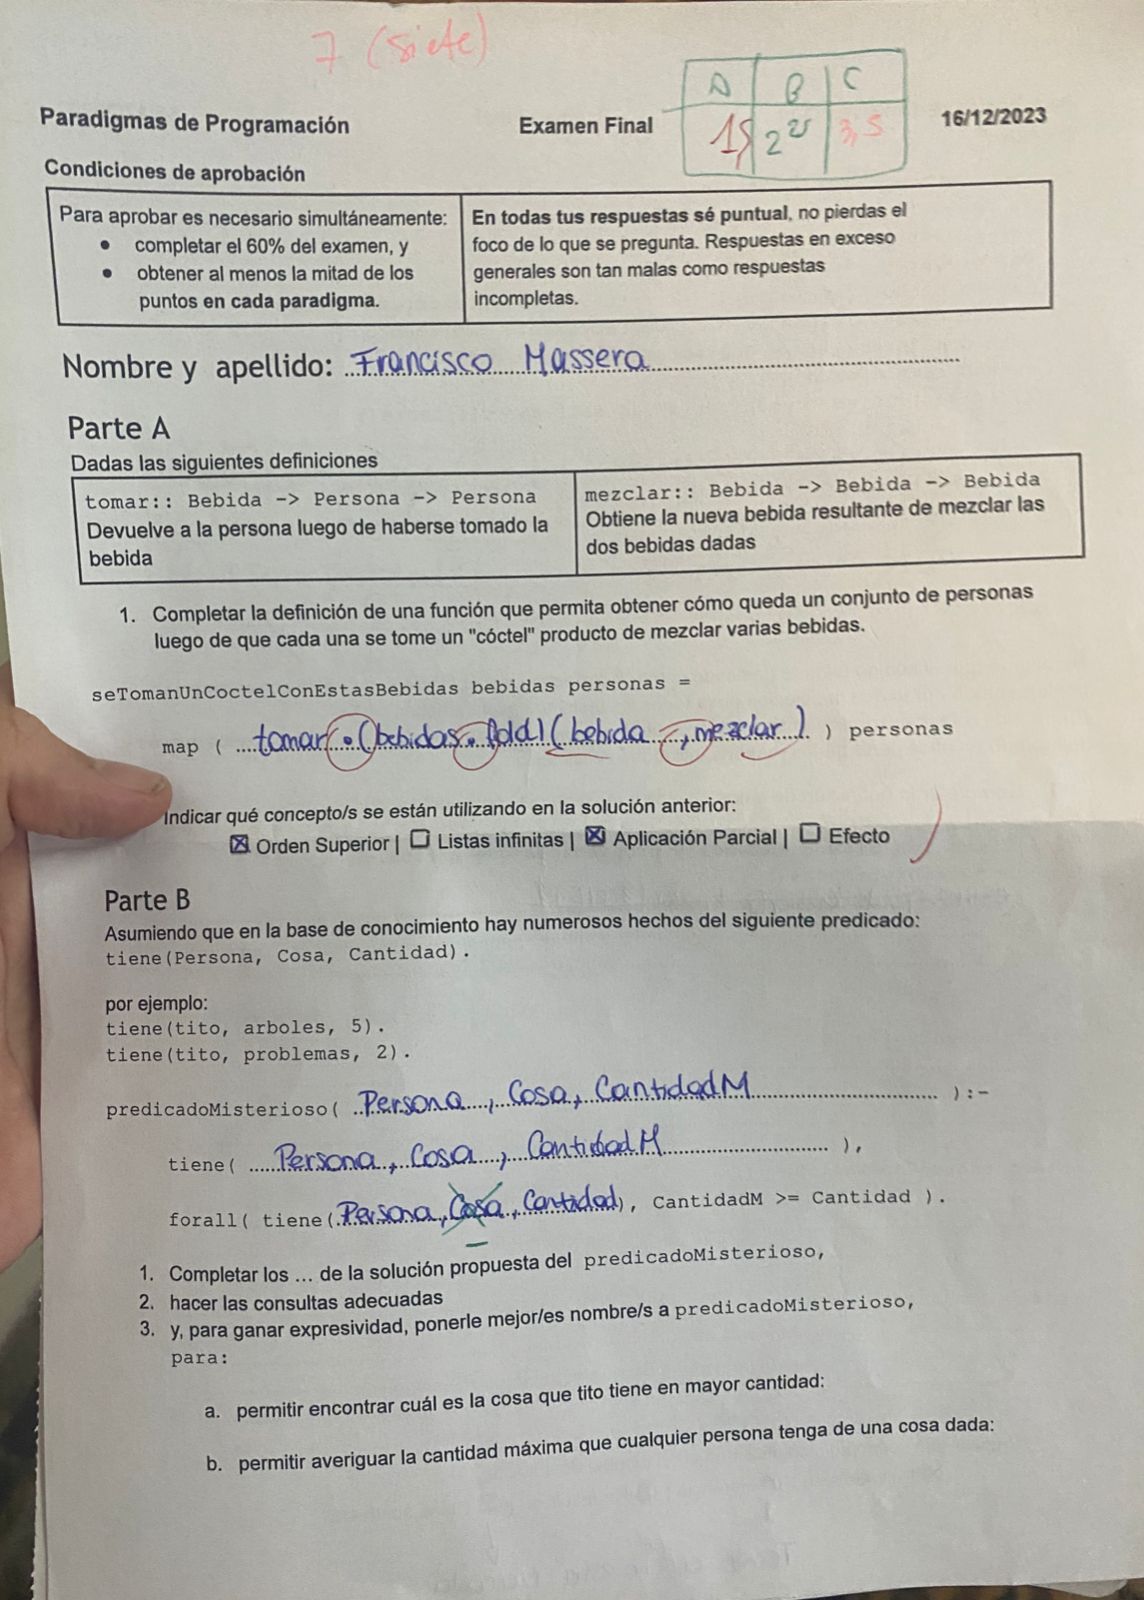 7 (siete)
A B C
Paradigmas de Programación Examen Final 1,5 2 25 3,5 16/12/2023
Condiciones de aprobación
Para aprobar es necesario simultáneamente:
• completar el 60% del examen, y
• obtener al menos la mitad de los
puntos en cada paradigma.
En todas tus respuestas sé puntual, no pierdas el
foco de lo que se pregunta. Respuestas en exceso
generales son tan malas como respuestas
incompletas.
Nombre y apellido: Francisco Massera
Parte A
Dadas las siguientes definiciones
tomar:: Bebida -> Persona -> Persona
Devuelve a la persona luego de haberse tomado la
bebida
mezclar:: Bebida -> Bebida -> Bebida
Obtiene la nueva bebida resultante de mezclar las
dos bebidas dadas
1. Completar la definición de una función que permita obtener cómo queda un conjunto de personas
luego de que cada una se tome un "cóctel" producto de mezclar varias bebidas.
seTomanUnCoctelConEstasBebidas bebidas personas =
map ( tomar . (bebidas . foldl (bebida , mezclar ) ) personas
Indicar qué concepto/s se están utilizando en la solución anterior:
☒ Orden Superior | ☐ Listas infinitas | ☒ Aplicación Parcial | ☐ Efecto
Parte B
Asumiendo que en la base de conocimiento hay numerosos hechos del siguiente predicado:
tiene(Persona, Cosa, Cantidad).
por ejemplo:
tiene(tito, arboles, 5).
tiene(tito, problemas, 2).
predicadoMisterioso( Persona, Cosa, CantidadM ):-
tiene( Persona, Cosa, CantidadM ),
forall( tiene( Persona, Cosa, Cantidad), CantidadM >= Cantidad ).
1. Completar los ... de la solución propuesta del predicadoMisterioso,
2. hacer las consultas adecuadas
3. y, para ganar expresividad, ponerle mejor/es nombre/s a predicadoMisterioso,
para:
a. permitir encontrar cuál es la cosa que tito tiene en mayor cantidad:
b. permitir averiguar la cantidad máxima que cualquier persona tenga de una cosa dada: